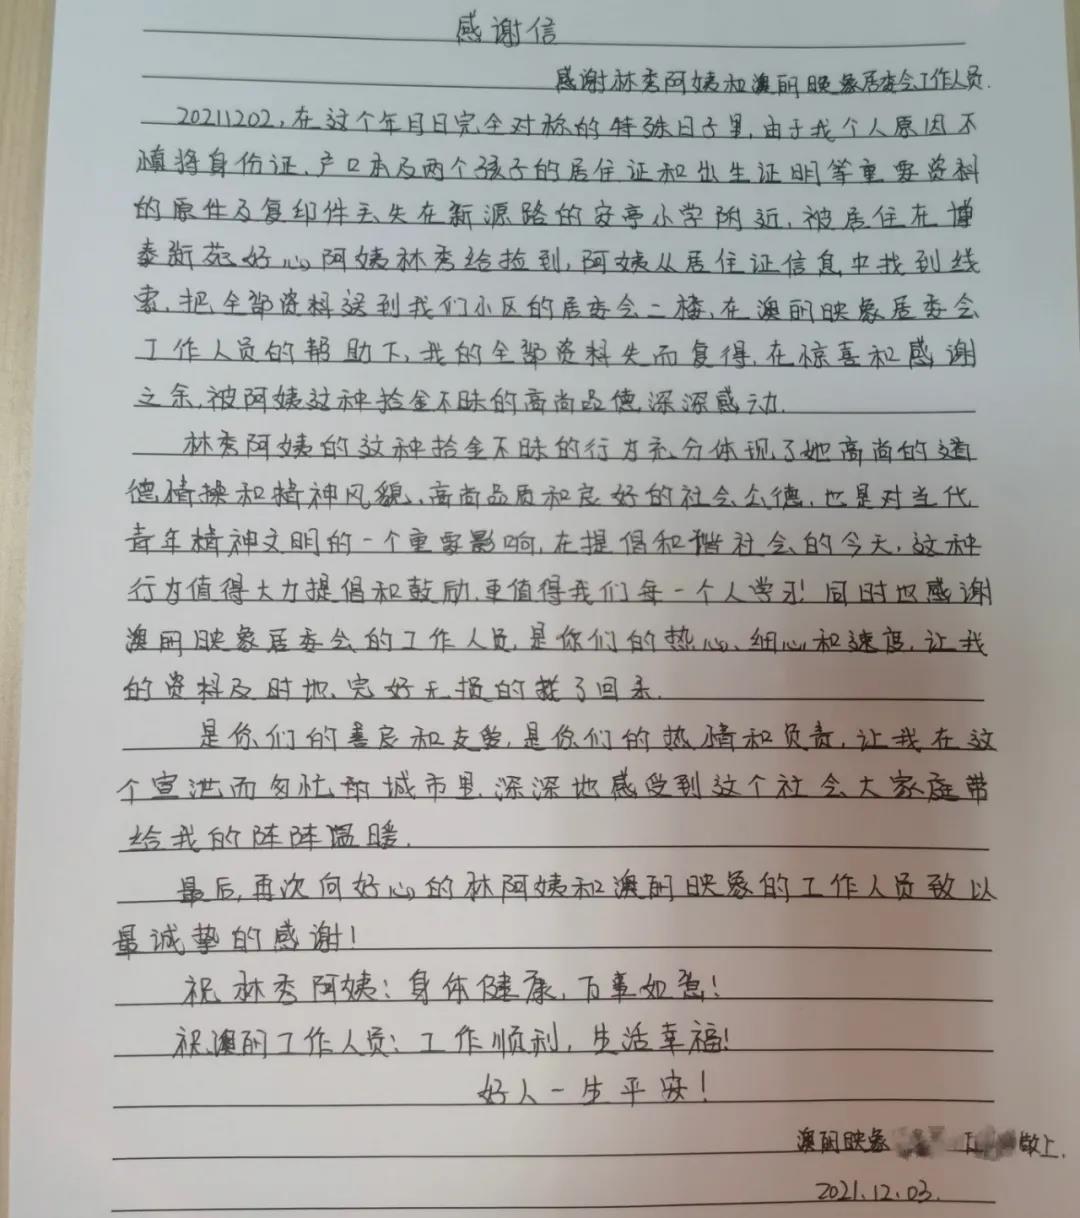 感谢信
感谢林秀阿姨和澳丽映象居委会工作人员.
20211202,在这个年月日完全对称的特殊日子里,由于我个人原因不
慎将身份证、户口本及两个孩子的居住证和出生证明等重要资料
的原件及复印件丢失在新源路的安亭小学附近,被居住在博
泰新苑好心阿姨林秀给捡到,阿姨从居住证信息中找到线
索,把全部资料送到我们小区的居委会二楼,在澳丽映象居委会
工作人员的帮助下,我的全部资料失而复得,在惊喜和感谢
之余,被阿姨这种拾金不昧的高尚品德深深感动.
林秀阿姨的这种拾金不昧的行为充分体现了她高尚的道
德情操和精神风貌,高尚品质和良好的社会公德,也是对当代
青年精神文明的一个重要影响,在提倡和谐社会的今天,这种
行为值得大力提倡和鼓励,更值得我们每一个人学习!同时也感谢
澳丽映象居委会的工作人员,是你们的热心、细心和速度,让我
的资料及时地、完好无损的找了回来.
是你们的善良和友爱,是你们的热情和负责,让我在这
个宣泄而匆忙的城市里,深深地感受到这个社会大家庭带
给我的阵阵温暖.
最后,再次向好心的林阿姨和澳丽映象的工作人员致以
最诚挚的感谢!
祝林秀阿姨:身体健康,万事如意!
祝澳丽工作人员:工作顺利,生活幸福!
好人一生平安!
澳丽映象 敬上.
2021.12.03.